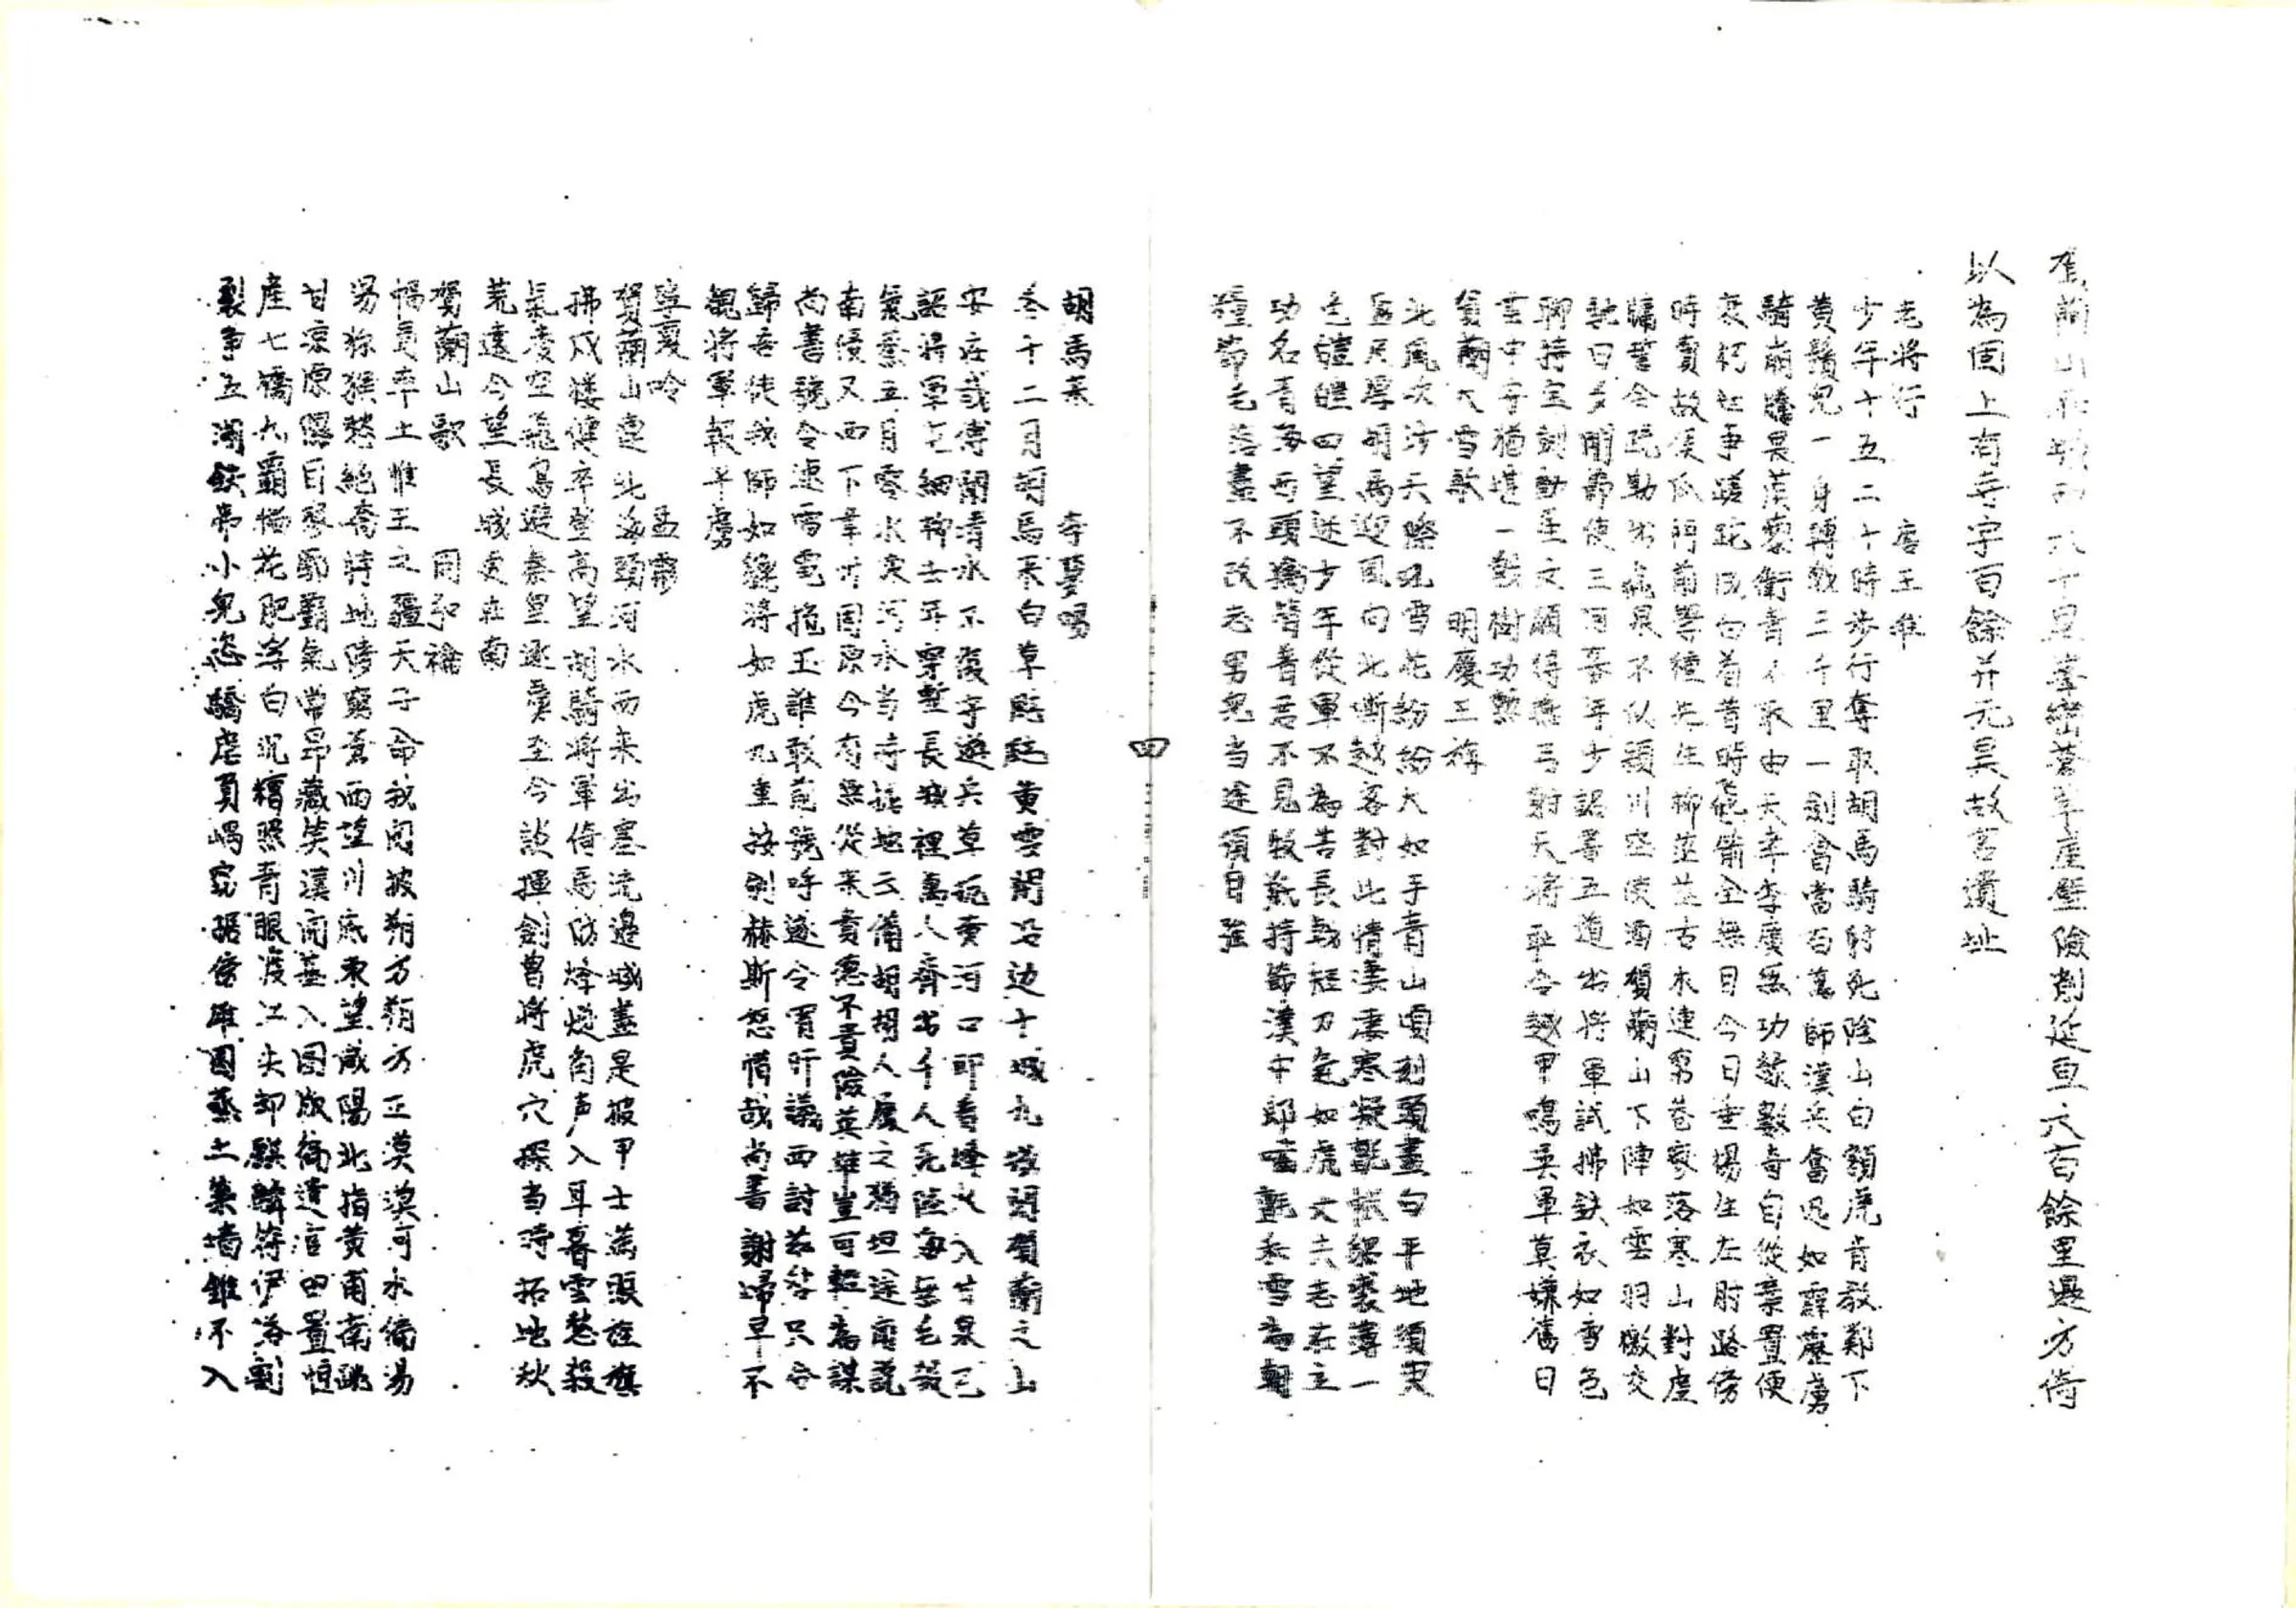 賀蘭山在城西六十里峯巒蒼翠崖壁險削延亘六百餘里邊方倚
以為固上有寺宇百餘并元昊故宮遺址
老將行 唐王維
少年十五二十時步行奪取胡馬騎射死陰山白額虎肯教鄴下
黃鬚兒一身轉戰三千里一劍曾當百萬師漢兵奮迅如霹靂虜
騎崩騰畏蒺藜衛青不敗由天幸李廣無功緣數奇自從棄置便
衰朽世事蹉跎成白首昔時飛箭全無目今日垂楊生左肘路傍
時賣故侯瓜門前學種先生柳茫茫古木連窮巷寥落寒山對虛
牖誓令疏勒出飛泉不似潁川空使酒賀蘭山下陣如雲羽檄交
馳日夕聞節使三河募年少詔書五道出將軍試拂鉄衣如雪色
聊持宝劍動星文願得燕弓射天將耻令越甲鳴吾軍莫嫌舊日
雲中守猶堪一戰樹功勲
賀蘭大雪歌 明慶王𣚴
北風吹沙天際吼雪花紛紛大如手青山頃刻頭盡白平地須臾
盈尺厚胡馬迎風向北嘶越客對此情淒凄寒凝氊帳貂裘薄一
色皚皚四望迷少年從軍不為苦長戟短刀氣如虎丈夫志在立
功名青海西頭擒贊普君不見牧羝持節漢中郎嚙氊和雪為朝
糧節毛落盡不改志男兒当途須自強
四
胡馬来 李夢陽
冬十二月胡馬来白草颭颭黄雲開沿边十城九城閉賀蘭之山
安在哉傳聞清水不復守遊兵草玩黄河口即看烽火入甘泉已
詔將軍屯細柳去年穿塹長城裡萬人齊出千人死陸海無毛殺
氣蒸五月零水寒河水当時掘地云備胡胡人履之猶坦途前說
南侵又西下韋州固原今有無從来貴德不貴險英雄豈可輕為謀
尚書號令速雷電抱玉誰敢前號呼遂令宵旰議西討茲咎只合
歸吾徒我師如貔將如虎九重按劍赫斯怒惜哉尚書謝歸早不
覩將軍報平虜
寧夏吟 孟霦
賀蘭山連北海頭河水西来出塞流邉城盡是披甲士滿眼旌旗
拂戍楼健卒登高望胡騎將軍倚馬防烽燧角声入耳暮雲愁殺
氣凌空飛鳥避秦皇逐虜至今談揮劍曾將虎穴探当時拓地秋
荒遠今望長城更在南
賀蘭山歌 周弘禴
幅員率土惟王之疆天子命我闵披朔方朔方正漠漠可水徜湯
易猱猴愁絶奇峙地倚窮蒼西望川底東望咸陽北指黄甫南眺
甘涼原隰自寥郭霸氣常昴藏英漢闹基入圖版徜遺官田置恒
産七橋六霸楊花肥渾白沉穯照青眼渡江夫卸麒麟符伊洛割
裂争五湖鉄帝小兒恣驕虐負嵎窃据偹雄圖蒸土築墙錐不入